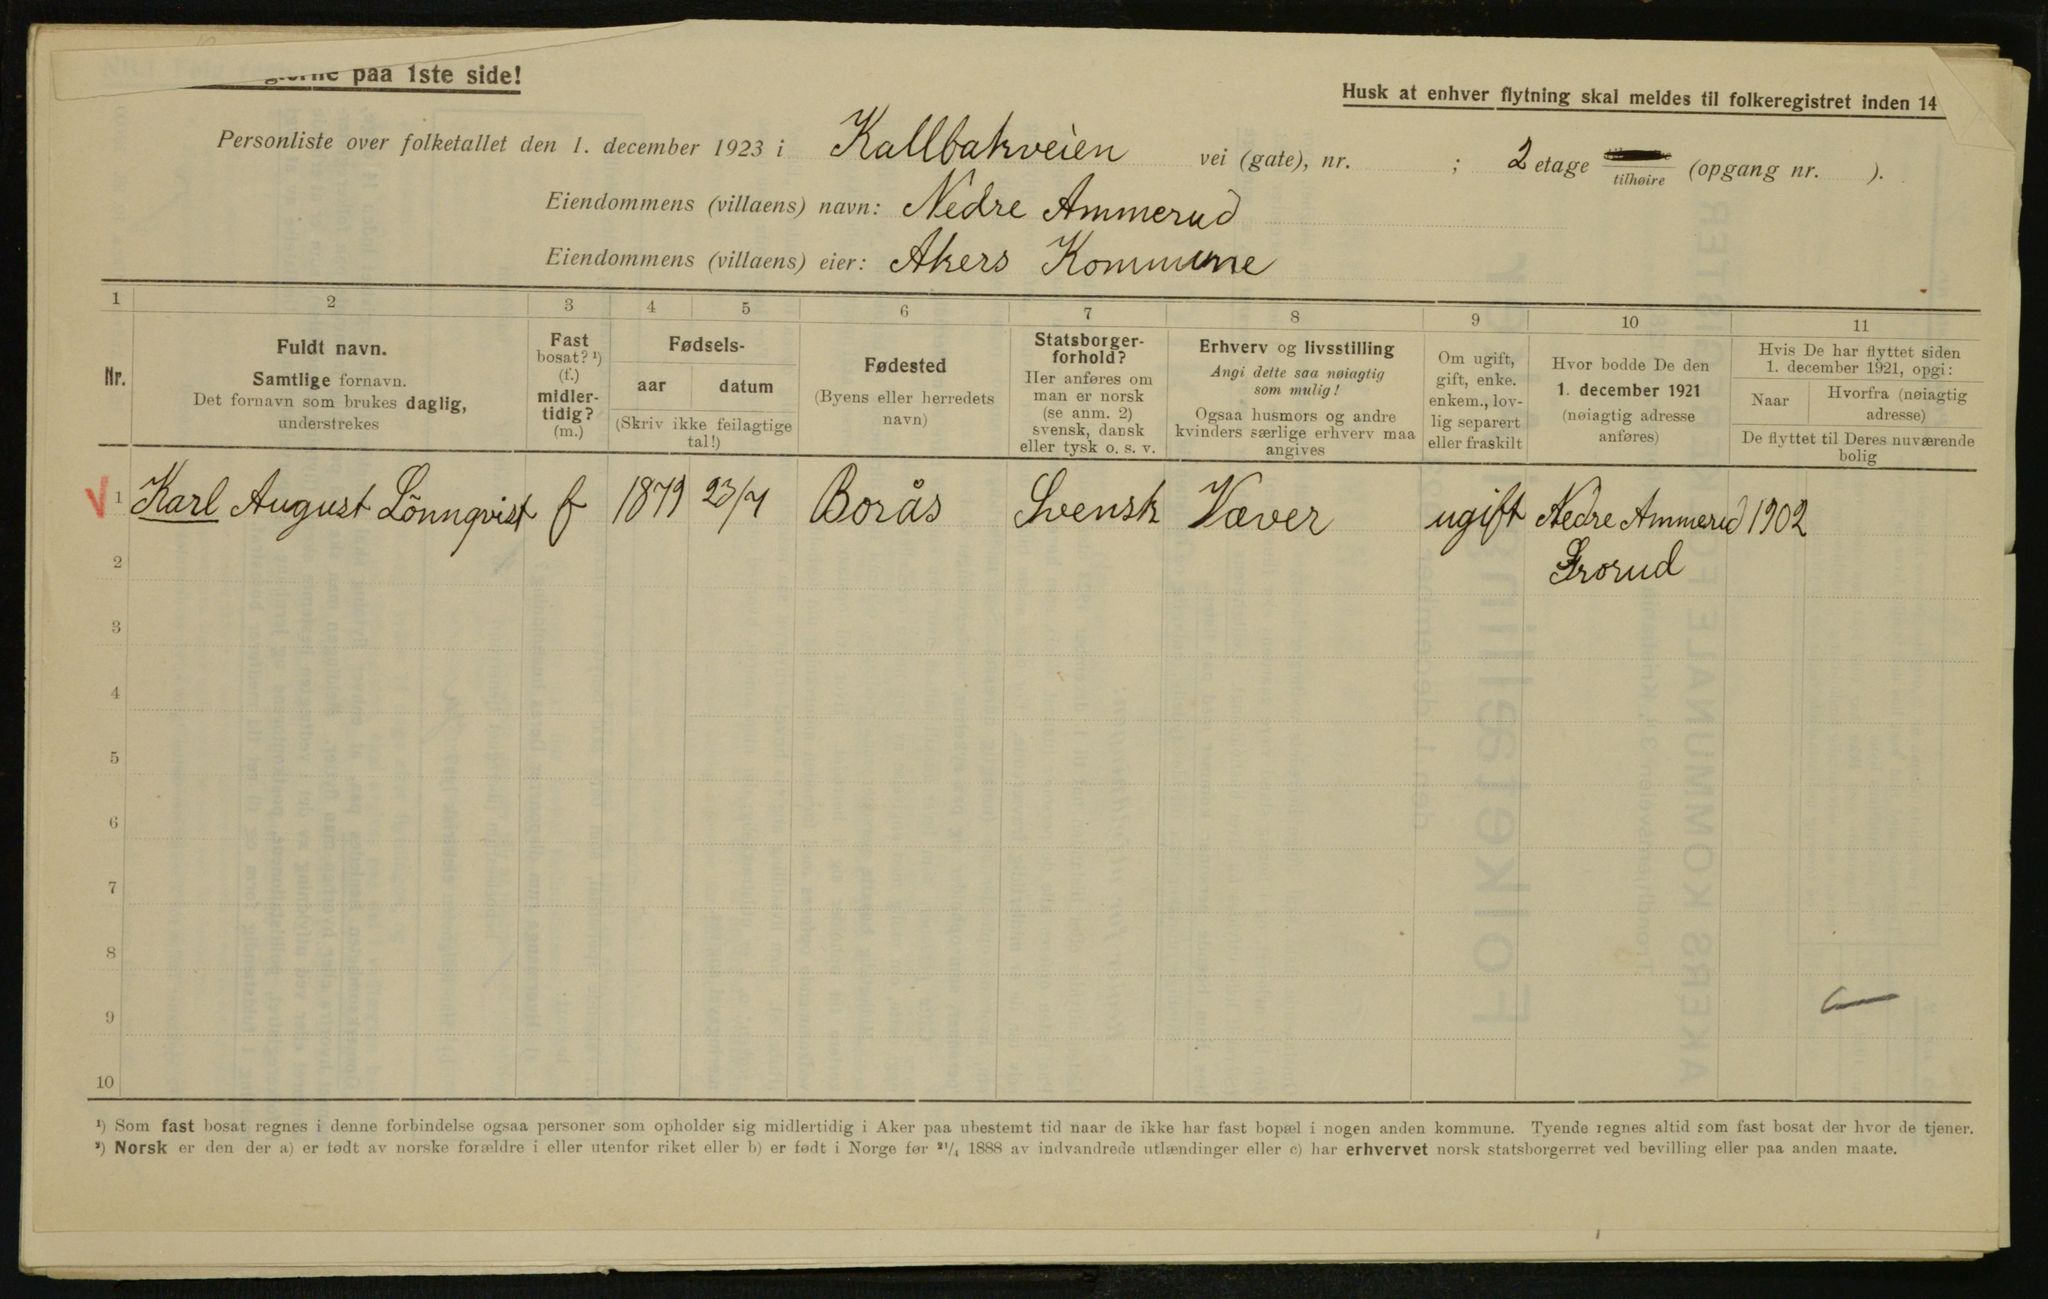 paa 1ste side!
Husk at enhver flytning skal meldes til folkeregistret inden 14
Personliste over folketallet den 1. december 1923 i Kallbakveien vei (gate), nr. ; 2 etage tilhøire (opgang nr. ).
Eiendommens (villaens) navn: Nedre Ammerud
Eiendommens (villaens) eier: Akers Kommune
1 2 3 4 5 6 7 8 9 10 11
Nr.
Fuldt navn.
Samtlige fornavn.
Det fornavn som brukes daglig,
understrekes
Fast
bosat? ¹)
(f.)
midler-
tidig?
(m.)
Fødsels-
aar datum
(Skriv ikke feilagtige
tal!)
Fødested
(Byens eller herredets
navn)
Statsborger-
forhold?
Her anføres om
man er norsk
(se anm. 2)
svensk, dansk
eller tysk o. s. v.
Erhverv og livsstilling
Angi dette saa nøiagtig
som mulig!
Ogsaa husmors og andre
kvinders særlige erhverv maa
angives
Om ugift,
gift, enke.
enkem., lov-
lig separert
eller fraskilt
Hvor bodde De den
1. december 1921
(nøiagtig adresse
anføres)
Hvis De har flyttet siden
1. december 1921, opgi:
Naar Hvorfra (nøiagtig
adresse)
De flyttet til Deres nuværende
bolig
1 Karl August Lönnqvist f 1879 23/7 Borås Svensk Væver ugift Nedre Ammerud 1902
Grorud
2
3
4
5
6
7
8
9
10
¹) Som fast bosat regnes i denne forbindelse ogsaa personer som opholder sig midlertidig i Aker paa ubestemt tid naar de ikke har fast bopæl i nogen anden kommune. Tyende regnes altid som fast bosat der hvor de tjener.
²) Norsk er den der a) er født av norske forældre i eller utenfor riket eller b) er født i Norge før ²¹/₄ 1888 av indvandrede utlændinger eller c) har erhvervet norsk statsborgerret ved bevilling eller paa anden maate.